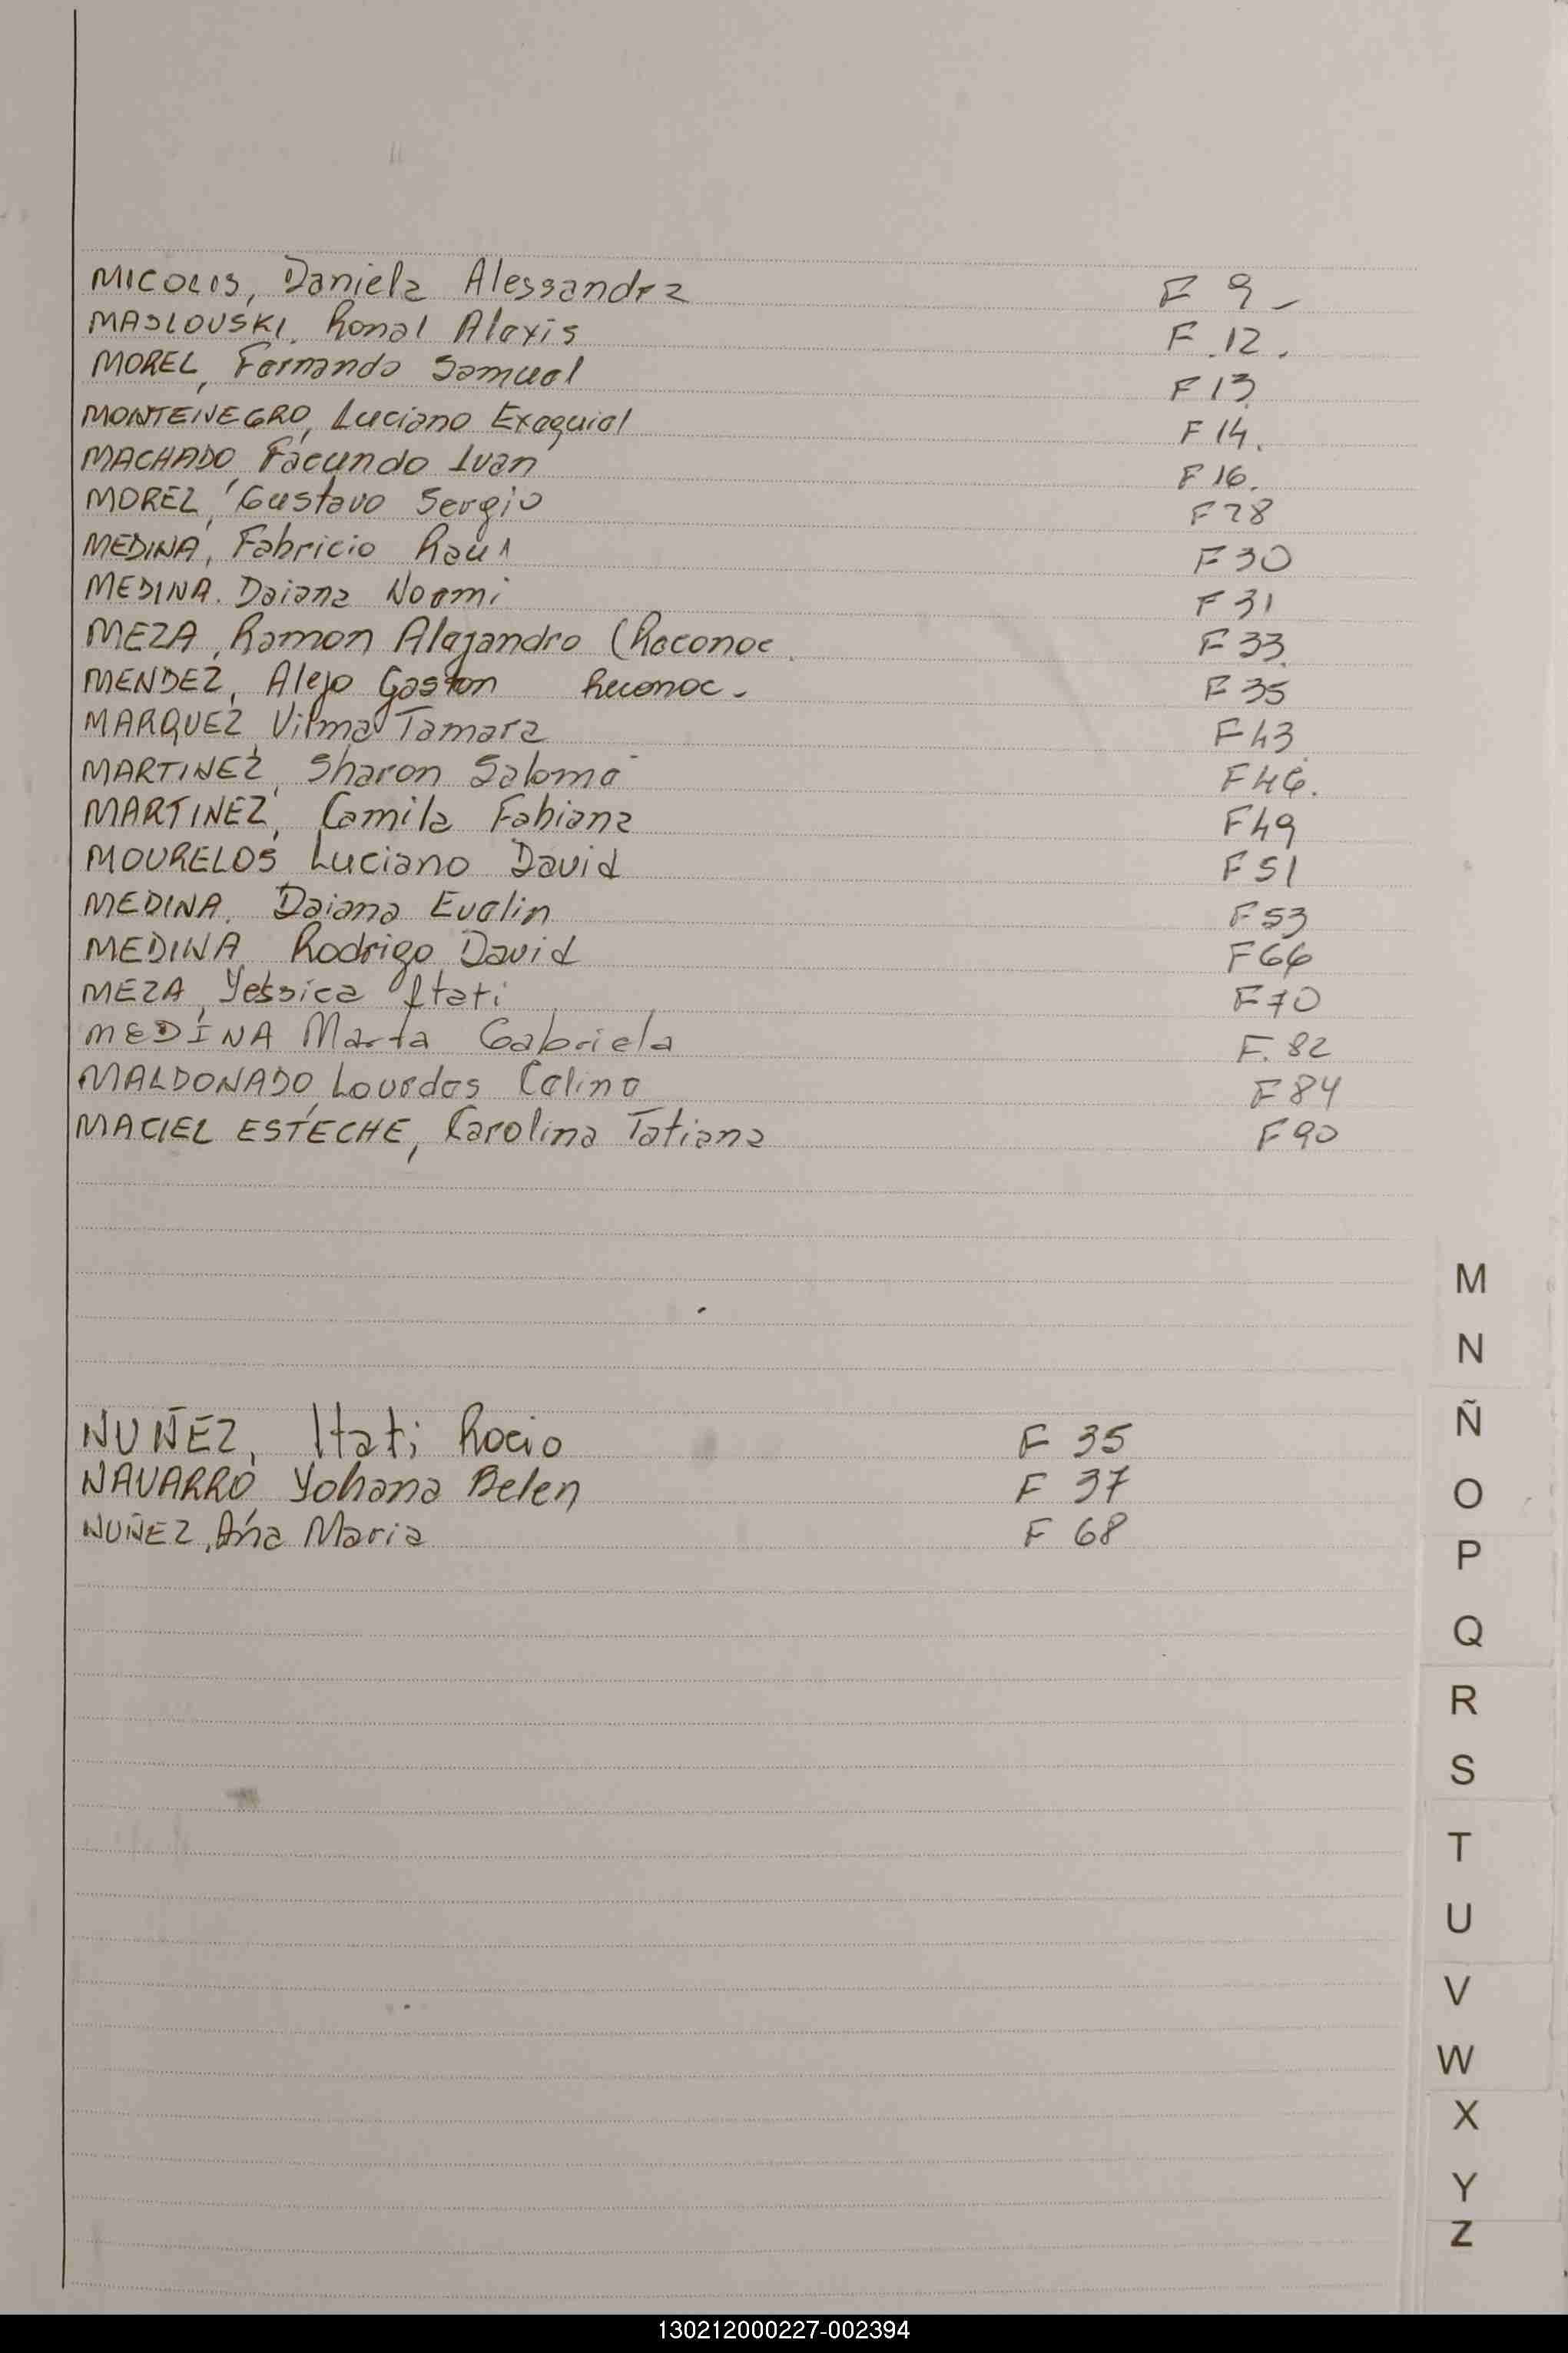 MICOLIS, Daniela Alessandra F 9-
MASLOUSKI, Ronal Alexis F.12.
MOREL, Fernando Samuel F13
MONTENEGRO, Luciano Exequiel F14.
MACHADO, Facundo Ivan F16.
MOREL, Gustavo Sergio F28
MEDINA, Fabricio Raul F30
MEDINA. Daiana Noemi F31
MEZA, Ramon Alejandro (Reconoc. F33.
MENDEZ, Alejo Gaston Reconoc. F35
MARQUEZ, Vilma Tamara F43
MARTINEZ, Sharon Salome F46.
MARTINEZ, Camila Fabiana F49
MOURELOS Luciano David F51
MEDINA. Daiana Evelin F53
MEDINA Rodrigo David F66
MEZA, Yessica Itati F70
MEDINA Marta Gabriela F.82
MALDONADO, Lourdes Celina F84
MACIEL ESTECHE, Carolina Tatiana F90
NUÑEZ, Itati Rocio F 35
NAVARRO, Yohana Belen F 37
NUÑEZ, Ana Maria F 68
M
N
Ñ
O
P
Q
R
S
T
U
V
W
X
Y
Z
130212000227-002394